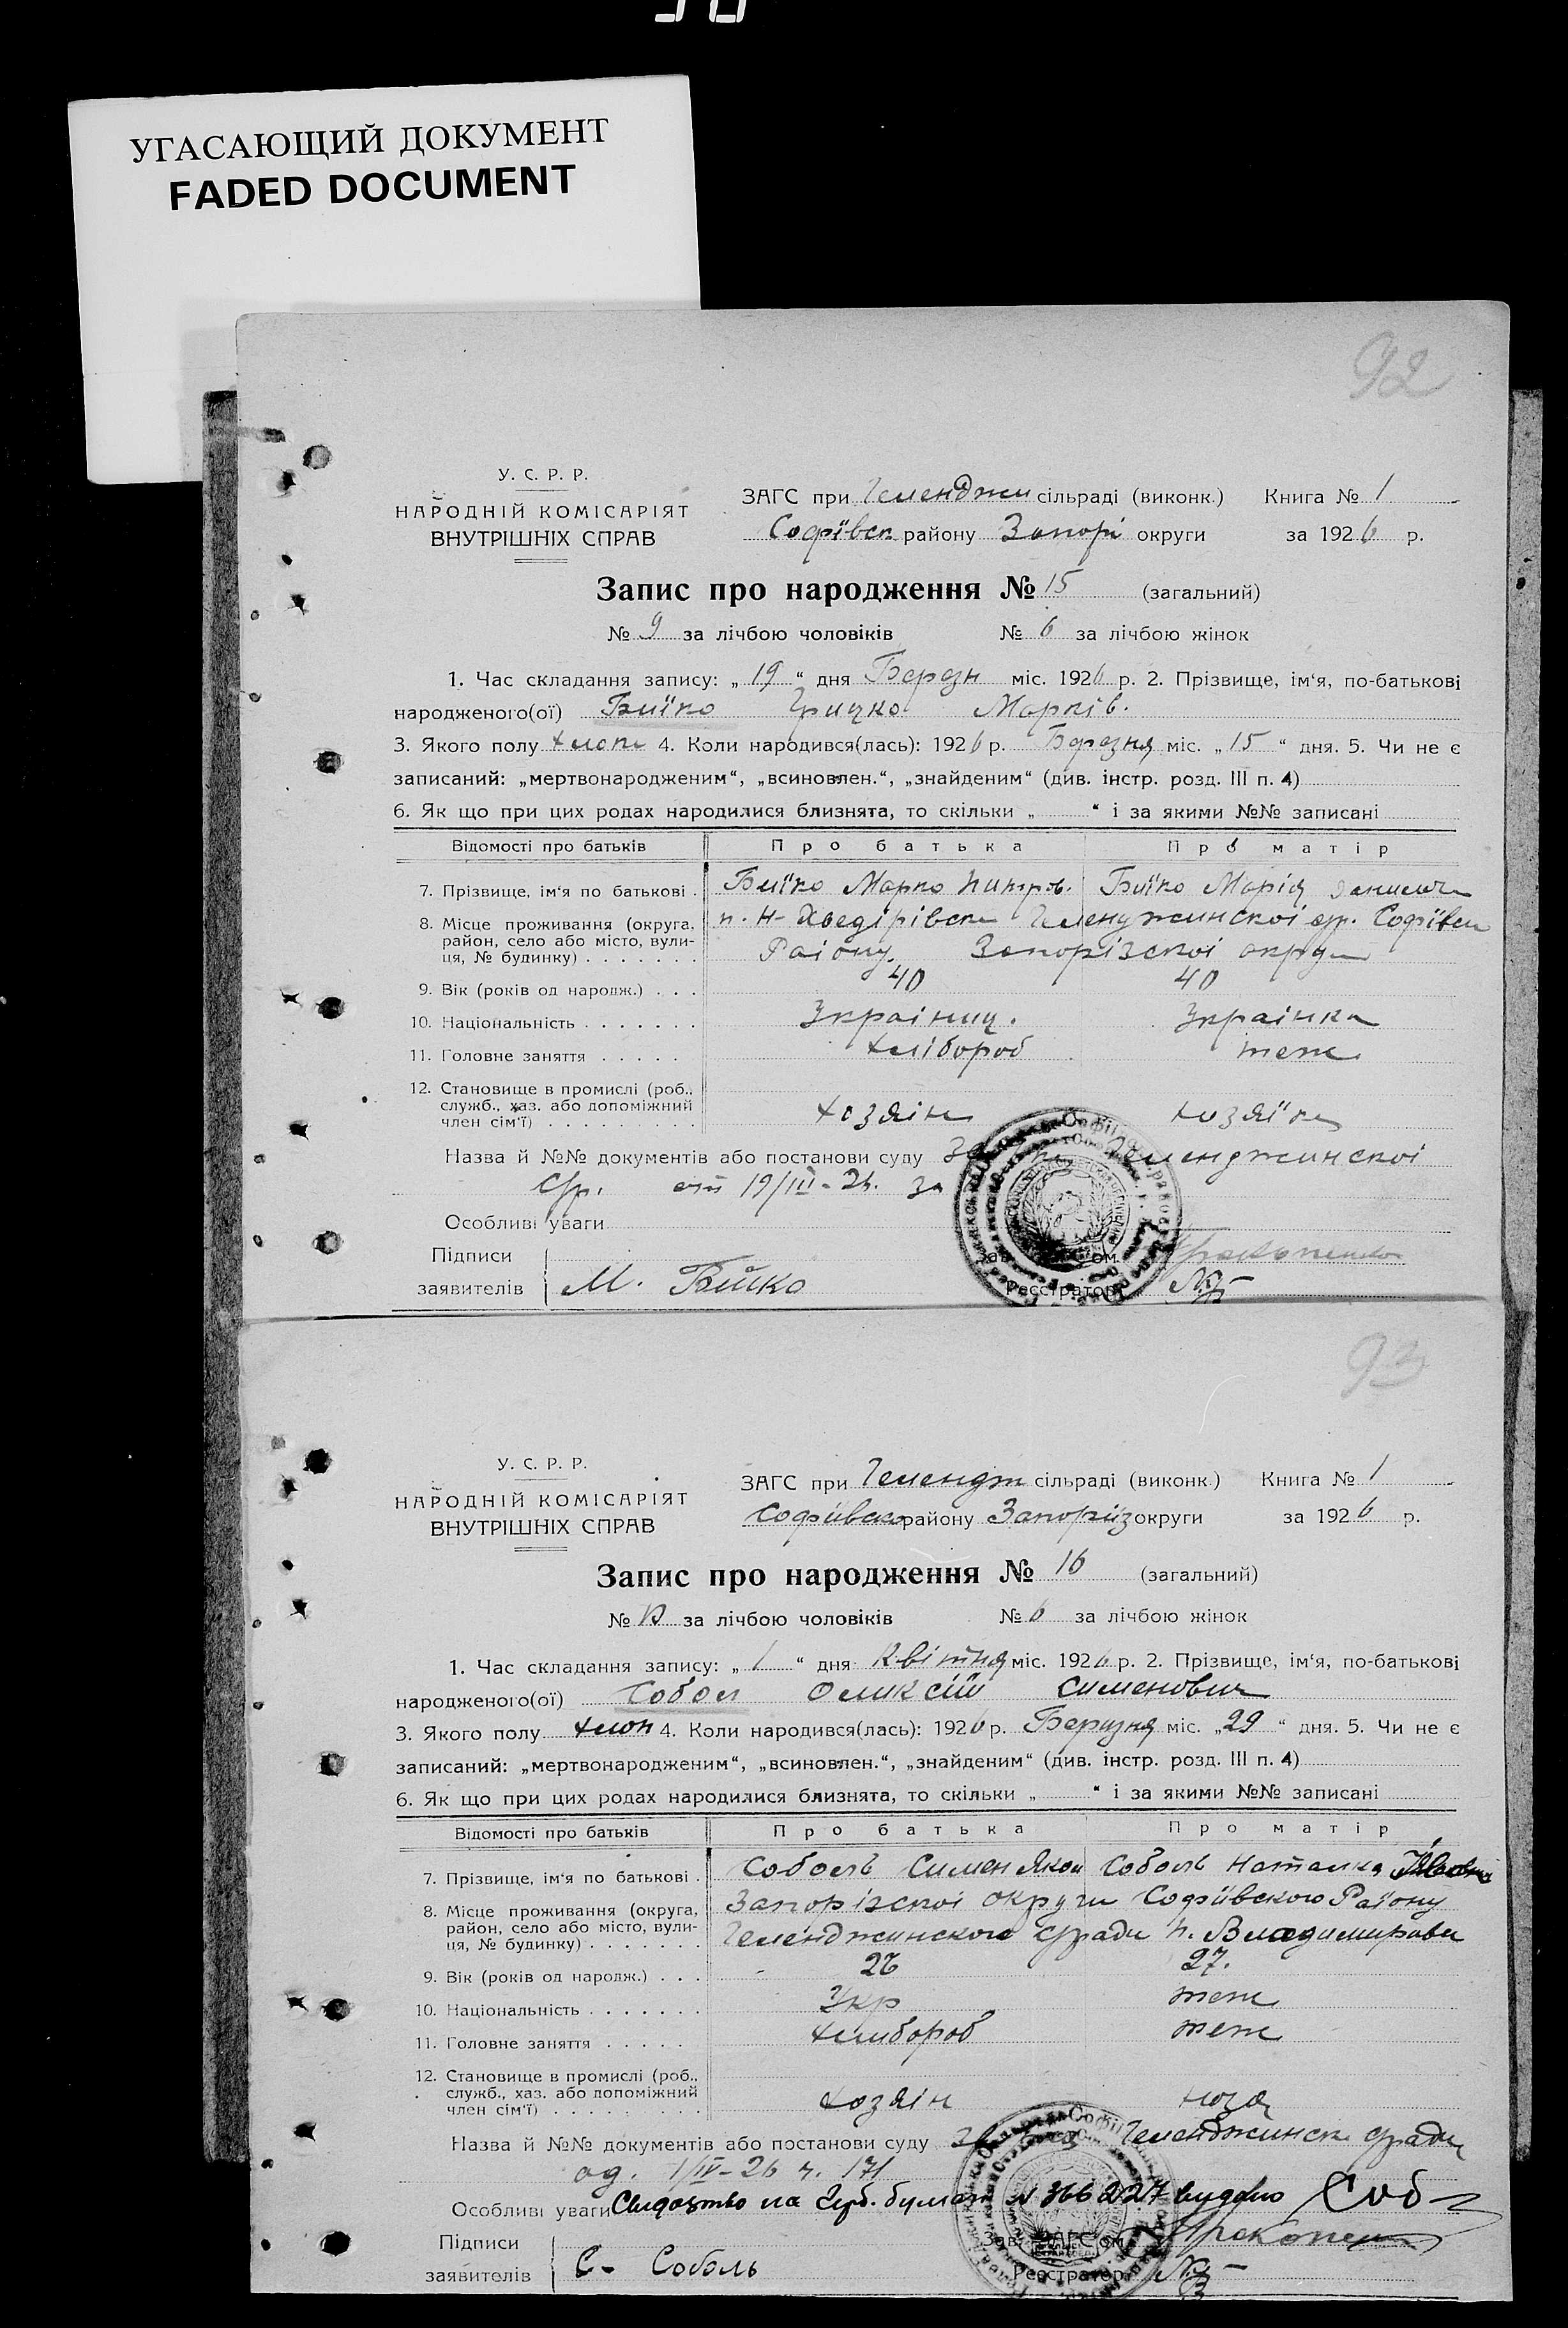 УГАСАЮЩИЙ ДОКУМЕНТ
FADED DOCUMENT
92
У. С. Р. Р.
НАРОДНІЙ КОМІСАРІЯТ
ВНУТРІШНІХ СПРАВ
ЗАГС при Геленджи сільраді (виконк.) Книга № 1
Софіївск району Запорі округи за 1926 р.
Запис про народження № 15 (загальний)
№ 9 за лічбою чоловіків № 6 за лічбою жінок
1. Час складання запису: „ 19 “ дня Березн міс. 1926 р. 2. Прізвище, ім‘я, по-батькові
народженого(ої) Бийко Грицко Марків.
3. Якого полу хлопч 4. Коли народився(лась): 1926 р. Березня міс. „ 15 “ дня. 5. Чи не є
записаний: „мертвонародженим“, „всиновлен.“, „знайденим“ (див. інстр. розд. III п. 4)
6. Як що при цих родах народилися близнята, то скільки „ “ і за якими №№ записані
Відомості про батьків Про батька Про матір
7. Прізвище, ім‘я по батькові . Бийко Марко Питров. Бийко Марія
8. Місце проживання (округа, район, село або місто, вули- ця, № будинку) п. Н-Хведірівск Геленджинскоі ср. Софіївск
Раіону. Запорізскоі округи
9. Вік (років од народж.) 40 40
10. Національність Украіниц. Украінка
11. Головне заняття Хлібороб теж
12. Становище в промислі (роб., служб., хаз. або допоміжний член сім‘ї) хозяін хозяїка
Назва й №№ документів або постанови суду Геленджинскоі
ср. від 19/III-26. за
Особливі уваги
Підписи
заявителів М. Бийко
Зав. ЗАГС‘ом
Реєстратор
93
У. С. Р. Р.
НАРОДНІЙ КОМІСАРІЯТ
ВНУТРІШНІХ СПРАВ
ЗАГС при Гелендж сільраді (виконк.) Книга № 1
Софиівско району Запоріз округи за 1926 р.
Запис про народження № 16 (загальний)
№ 10 за лічбою чоловіків № 6 за лічбою жінок
1. Час складання запису: „ 1 “ дня Квітня міс. 1926 р. 2. Прізвище, ім‘я, по-батькові
народженого(ої) Собол Оликсій Сименович
3. Якого полу хлоп 4. Коли народився(лась): 1926 р. Беризня міс. „ 29 “ дня. 5. Чи не є
записаний: „мертвонародженим“, „всиновлен.“, „знайденим“ (див. інстр. розд. III п. 4)
6. Як що при цих родах народилися близнята, то скільки „ “ і за якими №№ записані
Відомості про батьків Про батька Про матір
7. Прізвище, ім‘я по батькові . Соболь Симен Яков Соболь Наталка
8. Місце проживання (округа, район, село або місто, вули- ця, № будинку) Запорізскоі округи Софиівского Раіону
Геленджинского сради п. Владимиривк
9. Вік (років од народж.) 26 27.
10. Національність Укр теж
11. Головне заняття Хлибороб теж
12. Становище в промислі (роб., служб., хаз. або допоміжний член сім‘ї) хозяін хозя
Назва й №№ документів або постанови суду Геленджинск сради
од. 1/IV-26 ч. 171
Особливі уваги Свидоцтво на Герб. бумазі № 366227 видано Соб
Підписи
заявителів С. Соболь
Зав. ЗАГС‘ом
Реєстратор